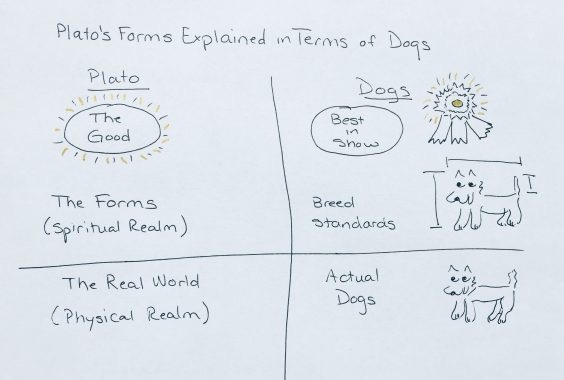 Plato's Forms Explained in Terms of Dogs
Plato
The
Good
The Forms
(Spiritual Realm)
The Real World
(Physical Realm)
Dogs
Best
in
Show
Breed
Standards
Actual
Dogs